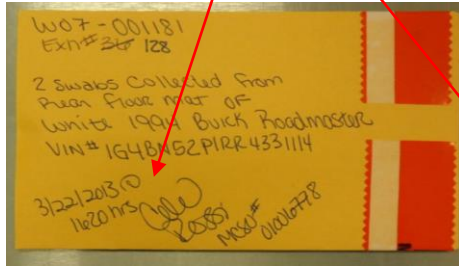 W07-001181
Exh# 36 128
2 swabs collected from
Rear floor mat of
White 1994 Buick Roadmaster
VIN# 1G4BN52P1RR4331114
3/22/2013 @
1620 hrs
MCSO#
01006778